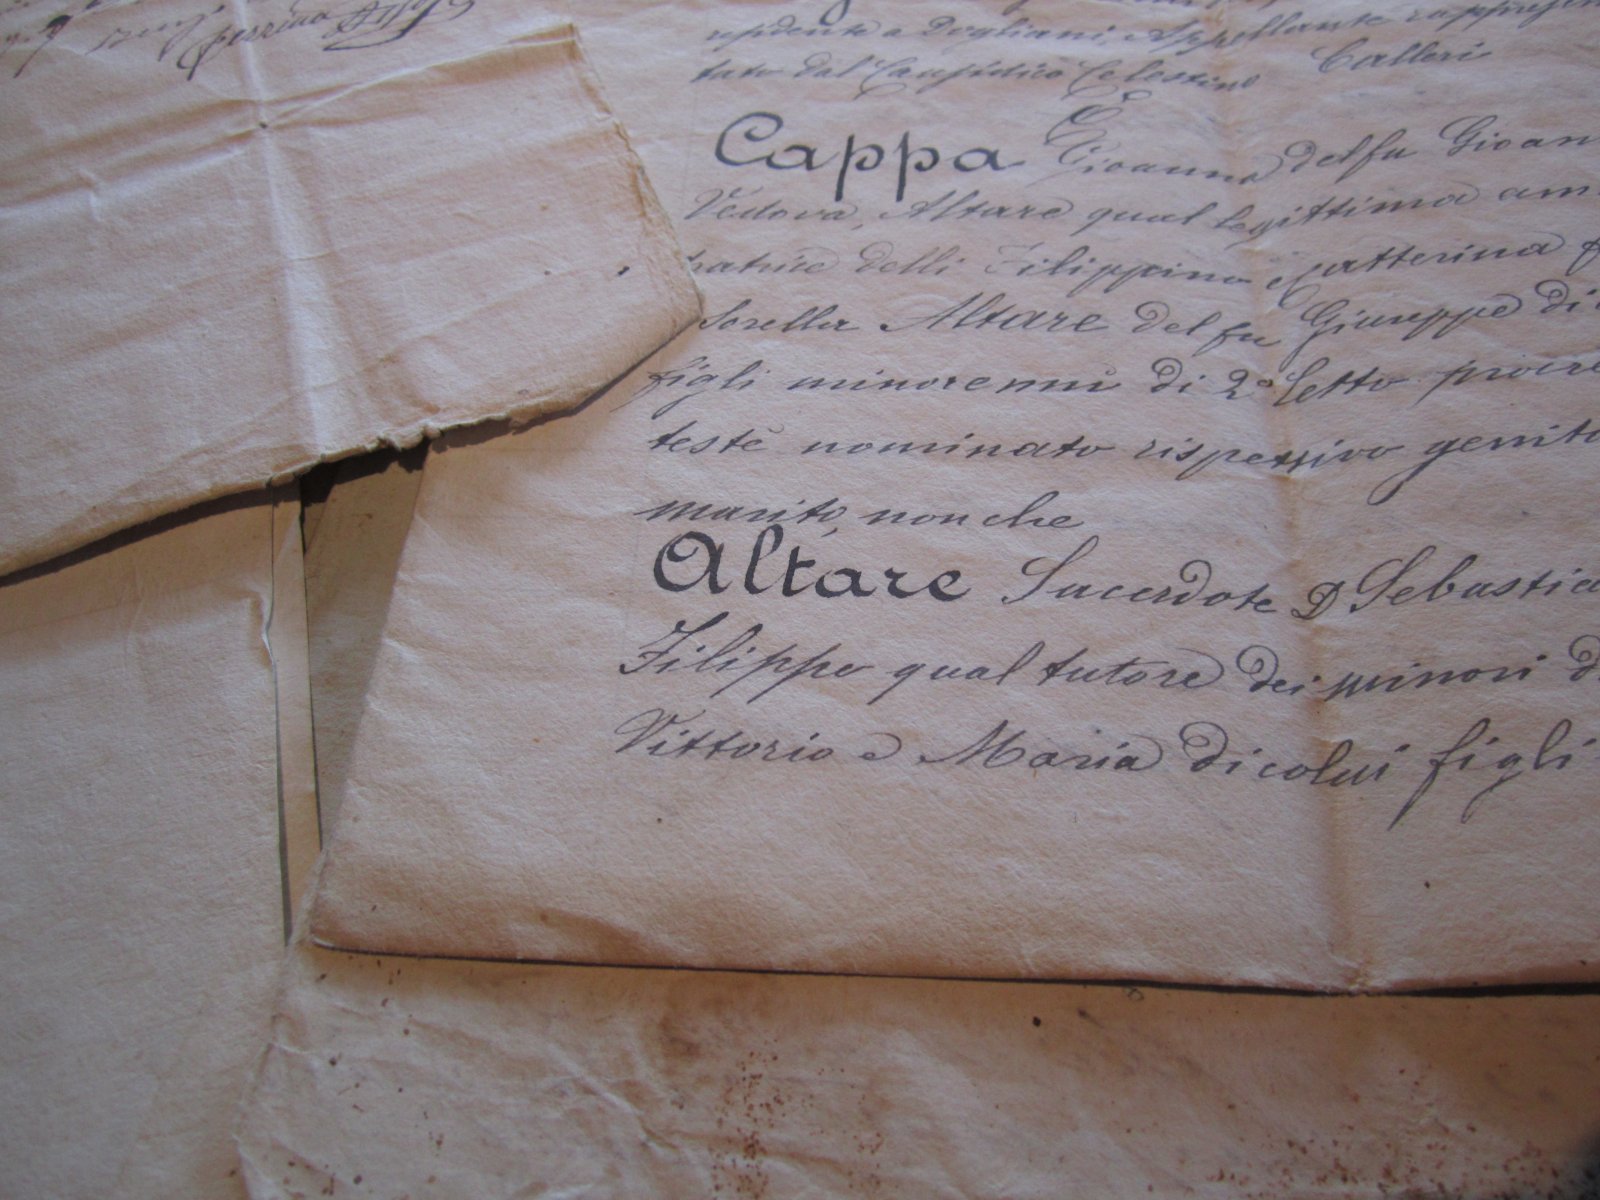 Perrino
residente a Dogliani, Appellante rappresen
tato dal Causidico Celestino Calleri
Cappa Gioanna del fu Gioan
Vedova, Altare qual legittima am
tratrice delli Filippino e Catterina f
Sorella Altare del fu Giuseppe di
figli minorenni di 2º letto procre
testè nominato rispettivo genito
marito, non che
Altare Sacerdote D Sebastia
Filippo qual tutore dei minori D
Vittorio e Maria di colui figli